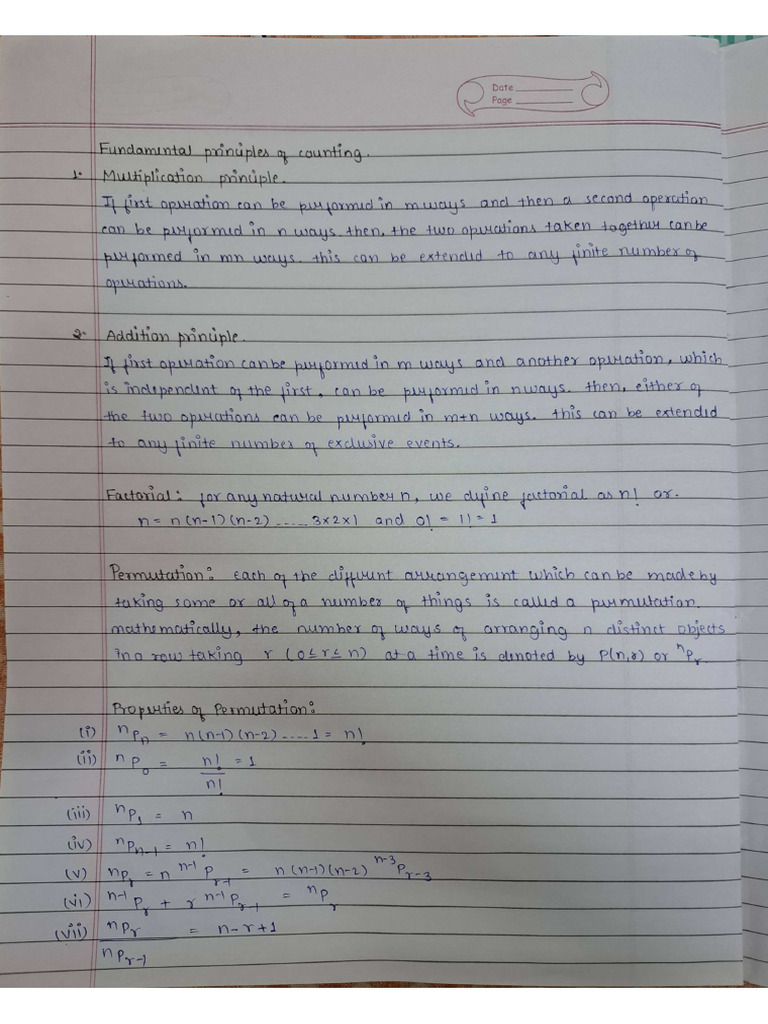 Date
Page
Fundamental principles of counting.
1. Multiplication principle.
If first operation can be performed in m ways and then a second operation
can be performed in n ways. then, the two operations taken together can be
performed in mn ways. this can be extended to any finite number of
operations.
2. Addition principle.
If first operation can be performed in m ways and another operation, which
is independent of the first, can be performed in n ways. then, either of
the two operations can be performed in m+n ways. this can be extended
to any finite number of exclusive events.
Factorial: for any natural number n, we define factorial as n! or.
n = n(n-1)(n-2) ..... 3×2×1 and 0! = 1! = 1
Permutation: Each of the different arrangement which can be made by
taking some or all of a number of things is called a permutation.
mathematically, the number of ways of arranging n distinct objects
in a row taking r (0≤r≤n) at a time is denoted by P(n,r) or ⁿPᵣ.
Properties of Permutation:
(i) ⁿPₙ = n(n-1)(n-2) ..... 1 = n!
(ii) ⁿP₀ = n!/n! = 1
(iii) ⁿP₁ = n
(iv) ⁿPₙ₋₁ = n!
(v) ⁿPᵣ = n ⁿ⁻¹Pᵣ₋₁ = n(n-1)(n-2) ⁿ⁻³Pᵣ₋₃
(vi) ⁿ⁻¹Pᵣ + r ⁿ⁻¹Pᵣ₋₁ = ⁿPᵣ
(vii) ⁿPᵣ/ⁿPᵣ₋₁ = n-r+1